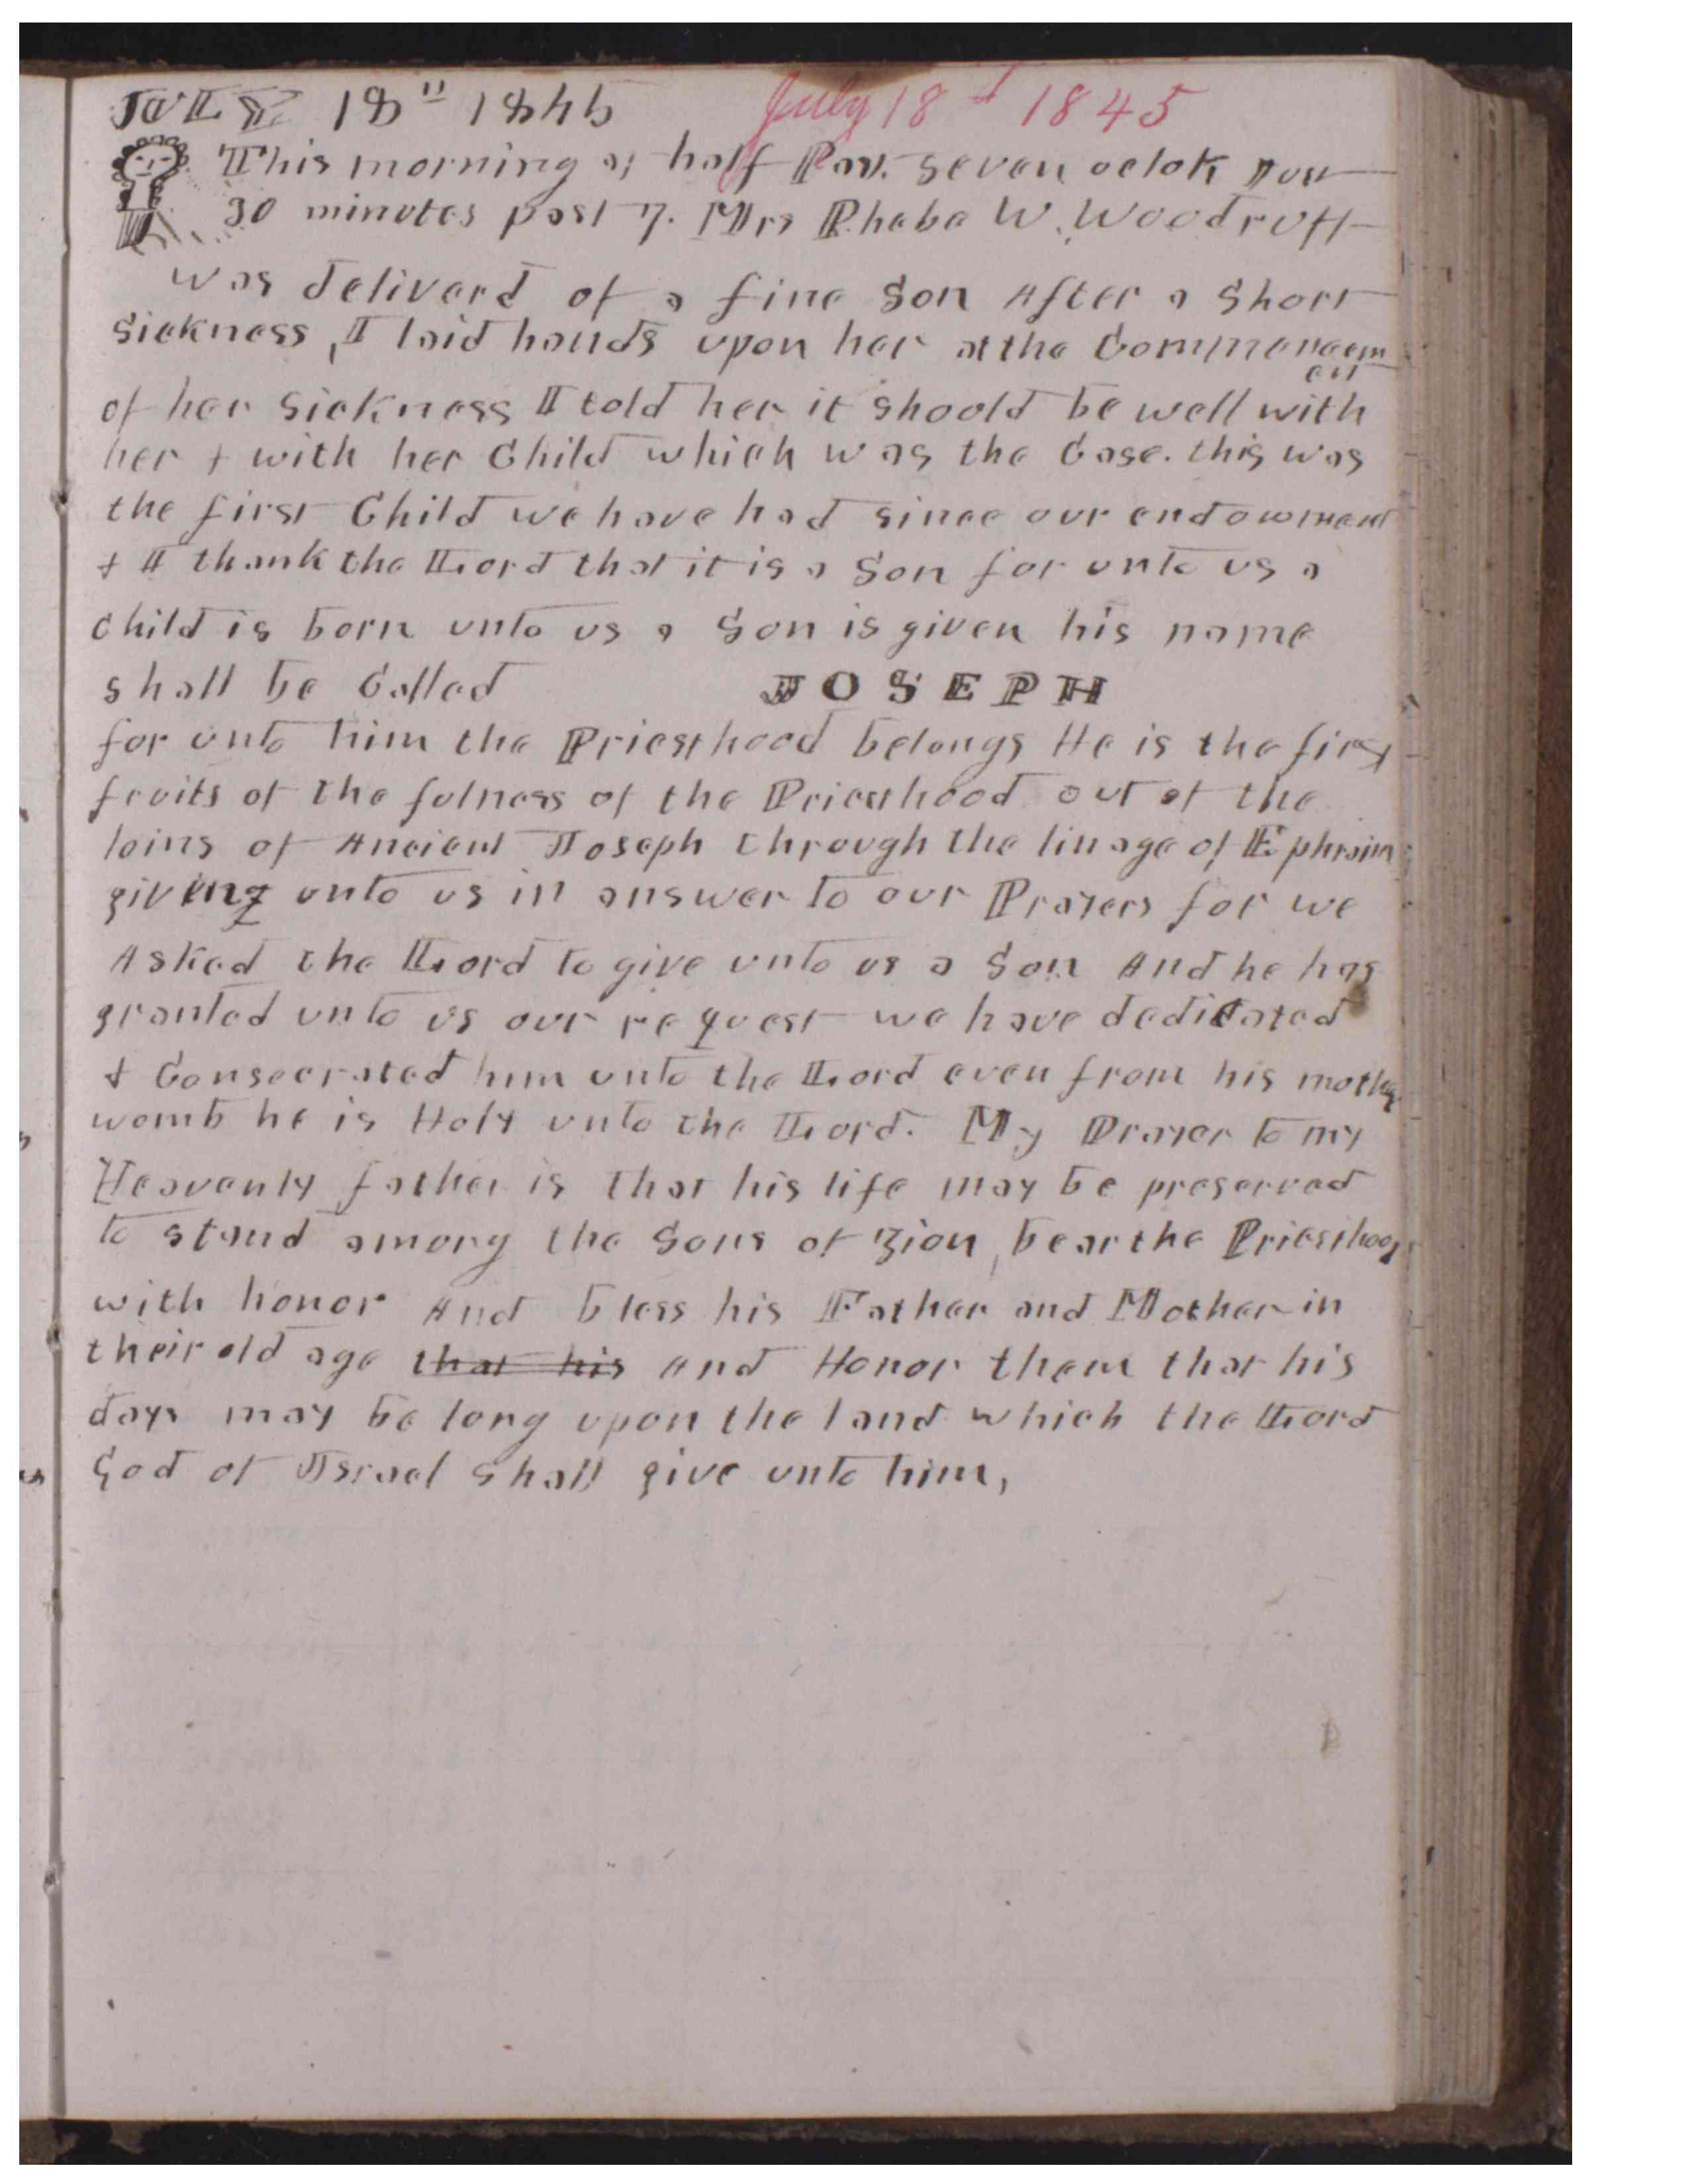 JULY 18" 1845 July 18th 1845
This morning at half Past seven oclok
30 minutes past 7. Mrs Phebe W. Woodruff
was deliverd of a fine Son After a Short
Sickness, I laid hands upon her at the Commencem
ent
of her Sickness I told her it should be well with
her & with her Child which was the Case. this was
the first Child we have had since our endowment
& I thank the Lord that it is a Son for unto us a
child is born unto us a Son is given his name
shall be Called JOSEPH
for unto him the Priesthood belongs He is the first
fruits of the fulness of the Priesthood out of the
loins of Ancient Joseph through the linage of Ephraim
giving unto us in answer to our Prayers for we
Asked the Lord to give unto us a Son And he has
granted unto us our request we have dedicated
& Consecrated him unto the Lord even from his mothe
womb he is Holy unto the Lord. My Prayer to my
Heavenly father is that his life may be preserved
to stand among the Sons of Zion, bear the Priesthood
with honor And bless his Father and Mother in
their old age that his And Honor them that his
days may be long upon the land which the Lord
God of Israel shall give unto him,